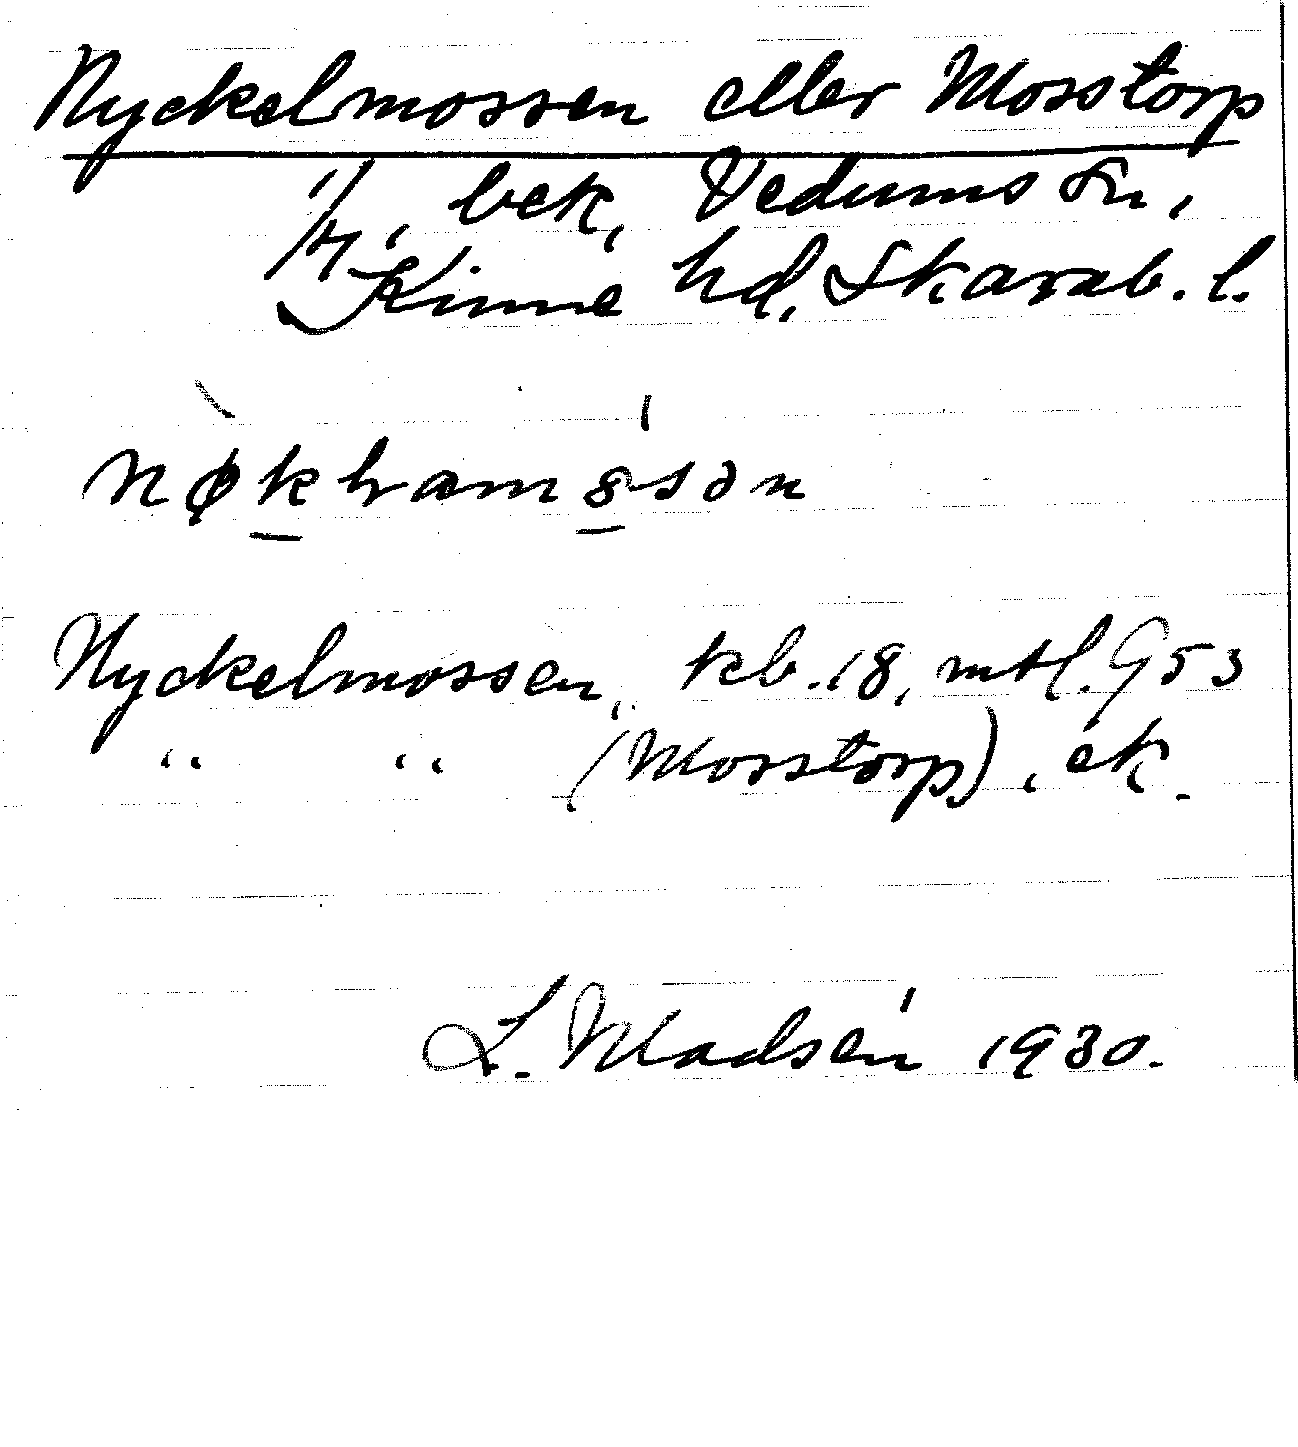 Nyckelmossen eller Mosstorp
1/4, bek, Vedums sn,
Kinne hd, Skarab. l.
Nyckelmossen, kb. 18, mtl. 953
“ “ (Mosstorp), ek.
L. Madsén 1930.